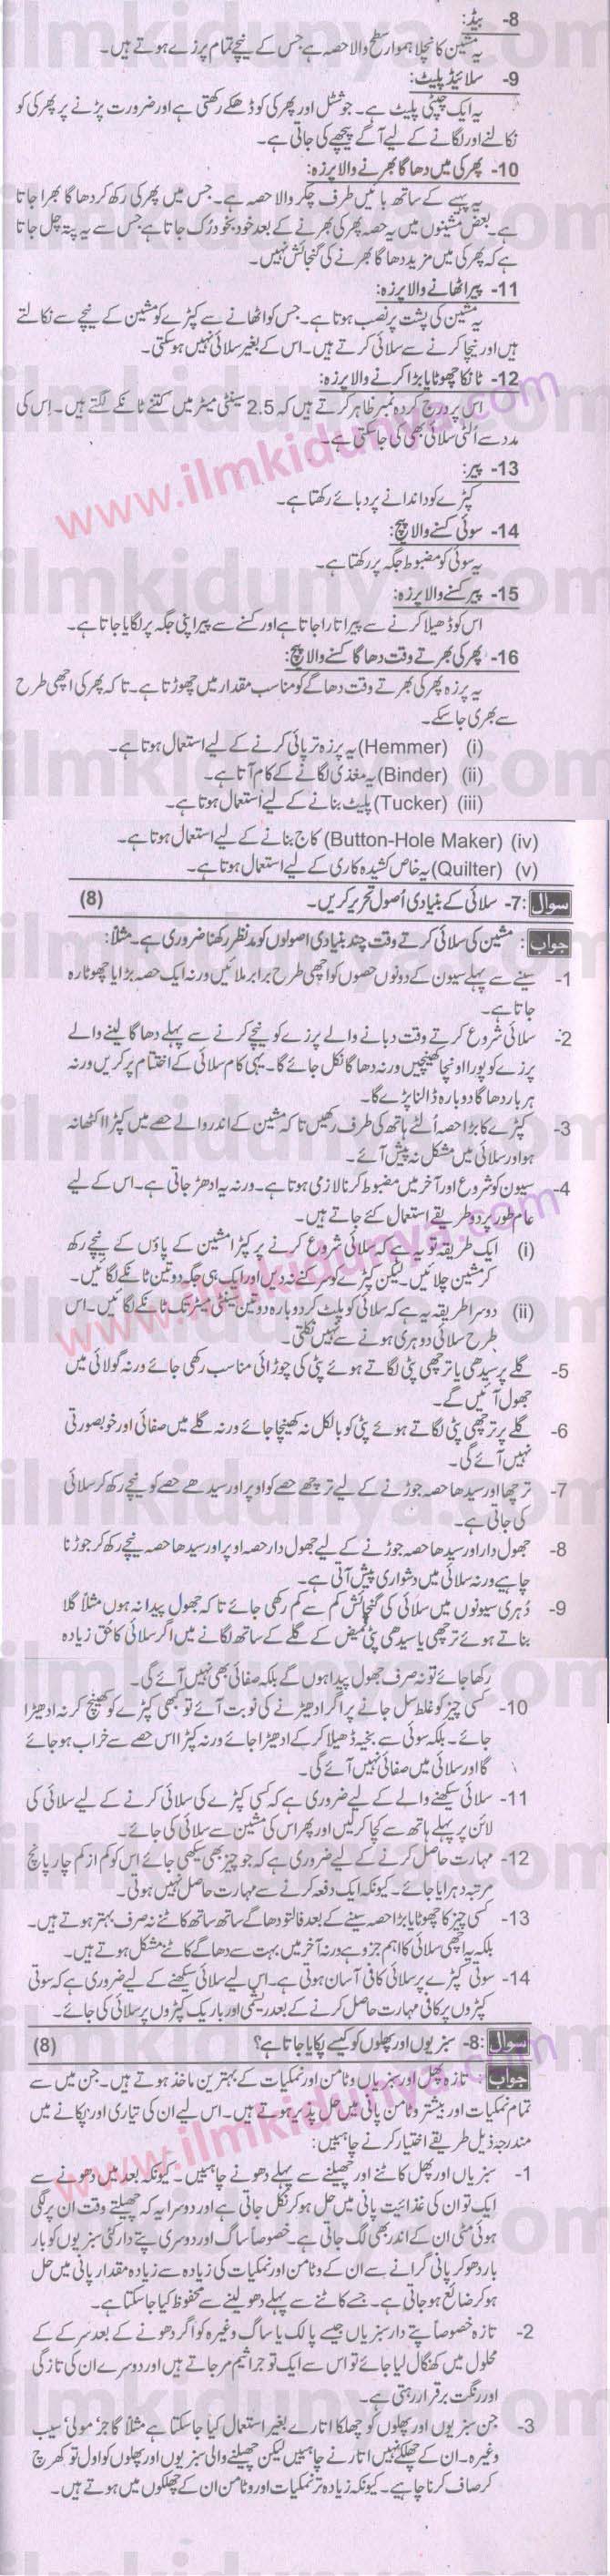 8- بیڈ:
یہ مشین کا نچلا ہموار سطح والا حصہ ہے جس کے نیچے تمام پرزے ہوتے ہیں۔
9- سلائیڈ پلیٹ:
یہ ایک چپٹی پلیٹ ہے۔ جو شٹل اور پھرکی کو ڈھکے رکھتی ہے اور ضرورت پڑنے پر پھرکی کو
نکالنے اور لگانے کے لیے آگے پیچھے کی جاتی ہے۔
10- پھرکی میں دھاگا بھرنے والا پرزہ:
یہ پہیے کے ساتھ بائیں طرف چکر والا حصہ ہے۔ جس میں پھرکی رکھ کر دھاگا بھرا جاتا
ہے۔ بعض مشینوں میں یہ حصہ پھرکی بھرنے کے بعد خود بخود رُک جاتا ہے جس سے یہ پتہ چل جاتا
ہے کہ پھرکی میں مزید دھاگا بھرنے کی گنجائش نہیں۔
11- پیر اٹھانے والا پرزہ:
یہ مشین کی پشت پر نصب ہوتا ہے۔ جس کو اٹھانے سے کپڑے کو مشین کے نیچے سے نکالتے
ہیں اور نیچا کرنے سے سلائی کرتے ہیں۔ اس کے بغیر سلائی نہیں ہو سکتی۔
12- ٹانکا چھوٹا یا بڑا کرنے والا پرزہ:
اس پر درج کردہ نمبر ظاہر کرتے ہیں کہ 2.5 سینٹی میٹر میں کتنے ٹانکے لگتے ہیں۔ اِس کی
مدد سے اُلٹی سلائی بھی کی جا سکتی ہے۔
13- پیر:
کپڑے کو داندانے پر دبائے رکھتا ہے۔
14- سوئی کسنے والا پیچ:
یہ سوئی کو مضبوط جگہ پر رکھتا ہے۔
15- پیر کسنے والا پرزہ:
اس کو ڈھیلا کرنے سے پیر اتارا جاتا ہے اور کسنے سے پیر اپنی جگہ پر لگایا جاتا ہے۔
16- پھرکی بھرتے وقت دھاگا کسنے والا پیچ:
یہ پرزہ پھرکی بھرتے وقت دھاگے کو مناسب مقدار میں چھوڑتا ہے۔ تاکہ پھرکی اچھی طرح
سے بھری جا سکے۔
(i) (Hemmer) یہ پرزہ ترپائی کرنے کے لیے استعمال ہوتا ہے۔
(ii) (Binder) یہ مغذی لگانے کے کام آتا ہے۔
(iii) (Tucker) پلیٹ بنانے کے لیے استعمال ہوتا ہے۔
(iv) (Button-Hole Maker) کاج بنانے کے لیے استعمال ہوتا ہے۔
(v) (Quilter) یہ خاص کشیدہ کاری کے لیے استعمال ہوتا ہے۔
سوال 7:- سلائی کے بنیادی اُصول تحریر کریں۔ (8)
جواب: مشین کی سلائی کرتے وقت چند بنیادی اصولوں کو مدنظر رکھنا ضروری ہے۔ مثلاً:
1- سینے سے پہلے سیون کے دونوں حصوں کو اچھی طرح برابر ملائیں ورنہ ایک حصہ بڑا یا چھوٹا رہ
جاتا ہے۔
2- سلائی شروع کرتے وقت دبانے والے پرزے کو نیچے کرنے سے پہلے دھاگا لینے والے
پرزے کو پورا اونچا کھینچیں ورنہ دھاگا نکل جائے گا۔ یہی کام سلائی کے اختتام پر کریں ورنہ
ہر بار دھاگا دوبارہ ڈالنا پڑے گا۔
3- کپڑے کا بڑا حصہ اُلٹے ہاتھ کی طرف رکھیں تاکہ مشین کے اندر والے حصے میں کپڑا اکٹھا نہ
ہو اور سلائی میں مشکل نہ پیش آئے۔
4- سیون کو شروع اور آخر میں مضبوط کرنا لازمی ہوتا ہے۔ ورنہ یہ ادھڑ جاتی ہے۔ اس کے لیے
عام طور پر دو طریقے استعمال کئے جاتے ہیں۔
(i) ایک طریقہ تو یہ ہے کہ سلائی شروع کرنے پر کپڑا مشین کے پاؤں کے نیچے رکھ
کر مشین چلائیں۔ لیکن کپڑے کو سرکنے نہ دیں اور ایک ہی جگہ دو تین ٹانکے لگائیں۔
(ii) دوسرا طریقہ یہ ہے کہ سلائی کو پلٹ کر دوبارہ دو تین سینٹی میٹر تک ٹانکے لگائیں۔ اس
طرح سلائی دوہری ہونے سے نہیں نکلتی۔
5- گلے پر سیدھی یا ترچھی پٹی لگاتے ہوئے پٹی کی چوڑائی مناسب رکھی جائے ورنہ گولائی میں
جھول آئیں گے۔
6- گلے پر ترچھی پٹی لگاتے ہوئے پٹی کو بالکل نہ کھینچا جائے ورنہ گلے میں صفائی اور خوبصورتی
نہیں آئے گی۔
7- ترچھا اور سیدھا حصہ جوڑنے کے لیے ترچھے حصے کو اوپر اور سیدھے حصے کو نیچے رکھ کر سلائی
کی جاتی ہے۔
8- جھول دار اور سیدھا حصہ جوڑنے کے لیے جھول دار حصہ اوپر اور سیدھا حصہ نیچے رکھ کر جوڑنا
چاہیے ورنہ سلائی میں دشواری پیش آتی ہے۔
9- دُہری سیونوں میں سلائی کی گنجائش کم سے کم رکھی جائے تاکہ جھول پیدا نہ ہوں مثلاً گلا
بناتے ہوئے ترچھی یا سیدھی پٹی قمیض کے گلے کے ساتھ لگانے میں اگر سلائی کا حق زیادہ
رکھا جائے تو نہ صرف جھول پیدا ہوں گے بلکہ صفائی بھی نہیں آئے گی۔
10- کسی چیز کو غلط سل جانے پر اگر ادھیڑنے کی نوبت آئے تو بھی کپڑے کو کھینچ کر نہ ادھیڑا
جائے۔ بلکہ سوئی سے بخیہ ڈھیلا کر کے ادھیڑا جائے ورنہ کپڑا اس حصے سے خراب ہو جائے
گا اور سلائی میں صفائی نہیں آئے گی۔
11- سلائی سیکھنے والے کے لیے ضروری ہے کہ کسی کپڑے کی سلائی کرنے کے لیے سلائی کی
لائن پر پہلے ہاتھ سے کچا کر لیں اور پھر اس کی مشین سے سلائی کی جائے۔
12- مہارت حاصل کرنے کے لیے ضروری ہے کہ جو چیز بھی سیکھی جائے اس کو کم از کم چار پانچ
مرتبہ دہرایا جائے۔ کیونکہ ایک دفعہ کرنے سے مہارت حاصل نہیں ہوتی۔
13- کسی چیز کا چھوٹا یا بڑا حصہ سینے کے بعد فالتو دھاگے ساتھ ساتھ کاٹنے نہ صرف بہتر ہوتے ہیں۔
بلکہ یہ اچھی سلائی کا اہم جزو ہے ورنہ آخر میں بہت سے دھاگے کاٹنے مشکل ہوتے ہیں۔
14- سوتی کپڑے پر سلائی کافی آسان ہوتی ہے۔ اس لیے سلائی سیکھنے کے لیے ضروری ہے کہ سوتی
کپڑوں پر کافی مہارت حاصل کرنے کے بعد ریشمی اور باریک کپڑوں پر سلائی کی جائے۔
سوال 8:- سبزیوں اور پھلوں کو کیسے پکایا جاتا ہے؟ (8)
جواب: تازہ پھل اور سبزیاں وٹامن اور نمکیات کے بہترین ماخذ ہوتے ہیں۔ جن میں سے
تمام نمکیات اور بیشتر وٹامن پانی میں حل پذیر ہوتے ہیں۔ اس لیے ان کی تیاری اور پکانے میں
مندرجہ ذیل طریقے اختیار کرنے چاہئیں:
1- سبزیاں اور پھل کاٹنے اور چھیلنے سے پہلے دھونے چاہئیں۔ کیونکہ بعد میں دھونے سے
ایک تو ان کی غذائیت پانی میں حل ہو کر نکل جاتی ہے اور دوسرا یہ کہ چھیلتے وقت ان پر لگی
ہوئی مٹی ان کے اندر بھی لگ جاتی ہے۔ خصوصاً ساگ اور دوسری پتے دار کٹی سبزیوں کو بار
بار دھو کر پانی گرانے سے ان کے وٹامن اور نمکیات کی زیادہ سے زیادہ مقدار پانی میں حل
ہو کر ضائع ہو جاتی ہے۔ جسے کاٹنے سے پہلے دھو لینے سے محفوظ کیا جا سکتا ہے۔
2- تازہ خصوصاً پتے دار سبزیاں جیسے پالک یا ساگ وغیرہ کو اگر دھونے کے بعد سرکے کے
محلول میں کھنگال لیا جائے تو اس سے ایک تو جراثیم مر جاتے ہیں اور دوسرے ان کی تازگی
اور رنگت برقرار رہتی ہے۔
3- جن سبزیوں اور پھلوں کو چھلکا اتارے بغیر استعمال کیا جا سکتا ہے مثلاً گاجر' مولی' سیب
وغیرہ۔ ان کے چھلکے نہیں اتارنے چاہئیں لیکن چھیلنے والی سبزیوں اور پھلوں کو اول تو کھرچ
کر صاف کرنا چاہیے۔ کیونکہ زیادہ تر نمکیات اور وٹامن ان کے چھلکوں میں ہوتے ہیں۔
www.ilmkidunya.com
www.ilmkidunya.com
www.ilmkidunya.com